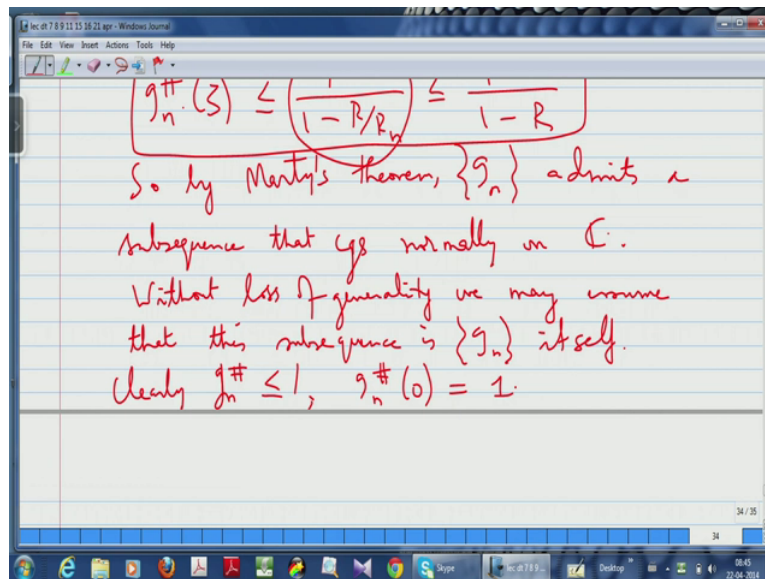 lec dt 7 8 9 11 15 16 21 apr - Windows Journal
File Edit View Insert Actions Tools Help
g_n^# (ζ) ≤ 1/(1 - R/R_n) ≤ 1/(1 - R)
So by Marty's theorem, {g_n} admits a
subsequence that cgs normally on ℂ.
Without loss of generality we may assume
that this subsequence is {g_n} itself.
Clearly g_n^# ≤ 1, g_n^# (0) = 1.
34 / 35
34
Skype
lec dt 7 8 9 ...
Desktop
08:45
22-04-2014